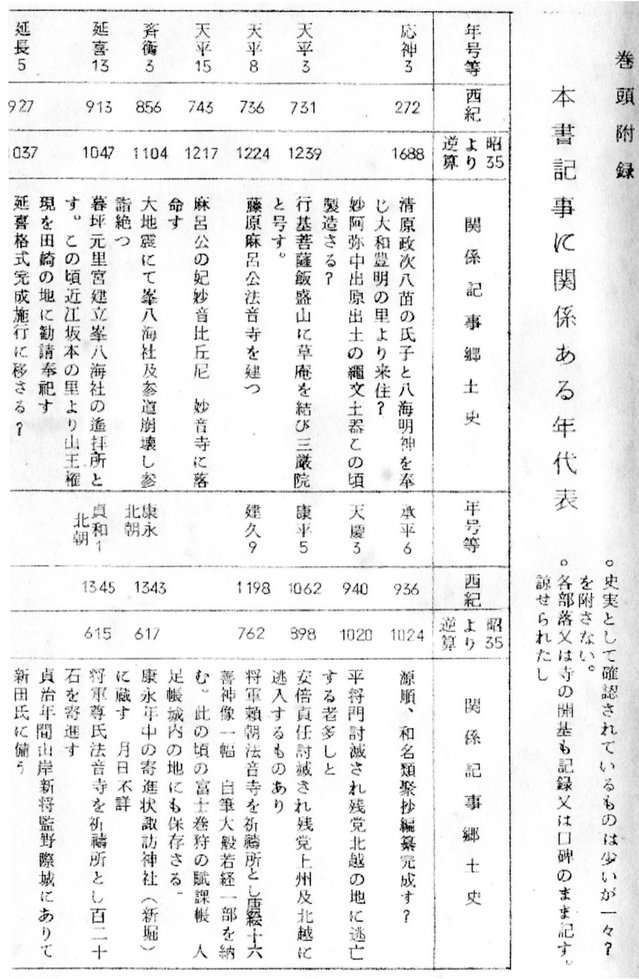 巻頭附録
本書記事に関係ある年代表
○史実として確認されているものは少いが一々?
を附さない。
○各部落又は寺の開基も記録又は口碑のまま記す。
諒せられたし
年号等
西紀
昭35より逆算
関係記事郷土史
応神3
272
1688
清原政次八苗の氏子と八海明神を奉
じ大和豊明の里より来住?
妙阿弥中出原出土の縄文土器この頃
製造さる?
天平3
731
1239
行基菩薩飯盛山に草庵を結び三厳院
と号す。
天平8
736
1224
藤原麻呂公法音寺を建つ
天平15
743
1217
麻呂公の妃妙音比丘尼 妙音寺に落
命す
斉衡3
856
1104
大地震にて峯八海社及参道崩壊し参
詣絶つ
延喜13
913
1047
暮坪元里宮建立峯八海社の遙拝所と
す。この頃近江坂本の里より山王権
現を田崎の地に勧請奉祀す
延長5
927
1037
延喜格式完成施行に移さる?
年号等
西紀
昭35より逆算
関係記事郷土史
承平6
936
1024
源順、和名類聚抄編纂完成す?
天慶3
940
1020
平将門討滅され残党北越の地に逃亡
する者多しと
康平5
1062
898
安倍貞任討滅され残党上州及北越に
逃入するものあり
建久9
1198
762
将軍頼朝法音寺を祈禱所とし唐絵十六
善神像一幅 自筆大般若経一部を納
む。此の頃の富士巻狩の賦課帳 人
足帳城内の地にも保存さる。
康永
北朝
1343
617
康永年中の寄進状諏訪神社(新堀)
に蔵す 月日不詳
貞和1
北朝
1345
615
将軍尊氏法音寺を祈禱所とし百二十
石を寄進す
貞治年間山岸新将監野際城にありて
新田氏に備う